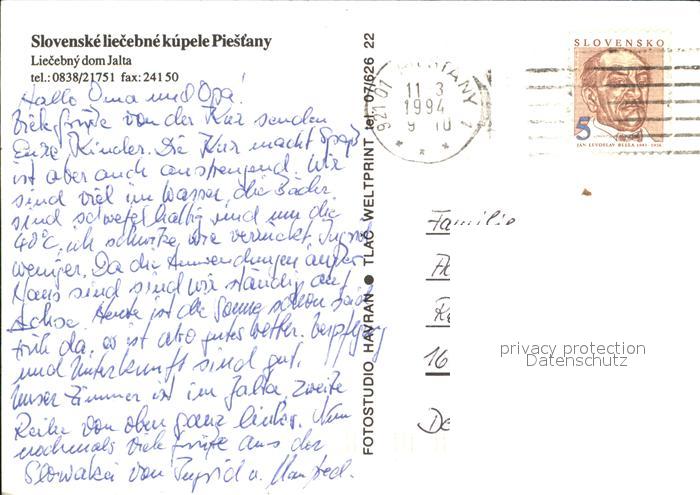 Slovenské liečebné kúpele Piešťany
Liečebný dom Jalta
tel.: 0838/21751 fax: 24150
Hallo Oma und Opa!
Viele Grüße von der Kur senden
Eure Kinder. Die Kur macht Spaß
ist aber auch anstrengend. Wir
sind viel im Wasser, die Bäder
sind schwefelhaltig und um die
40°C, ich schwitze wie verrückt, Ingrid
weniger. Da die Anwendungen außer
Haus sind sind wir ständig auf
Achse. Heute ist die Sonne schon seit
früh da, es ist also gutes Wetter. Verpflegung
und Unterkunft sind gut.
Unser Zimmer ist im Jalta, zweite
Reihe von oben ganz links. Nun
nochmals viele Grüße aus der
Slowakei von Ingrid u. Manfred.
FOTOSTUDIO HAVRAN ● TLAČ WELTPRINT tel. 07/626 22
921 01 PIEŠŤANY 1
11 3
1994
9 - 10
SLOVENSKO
5
JAN LEVOSLAV BELLA 1843-1936
Familie
16
privacy protection
Datenschutz